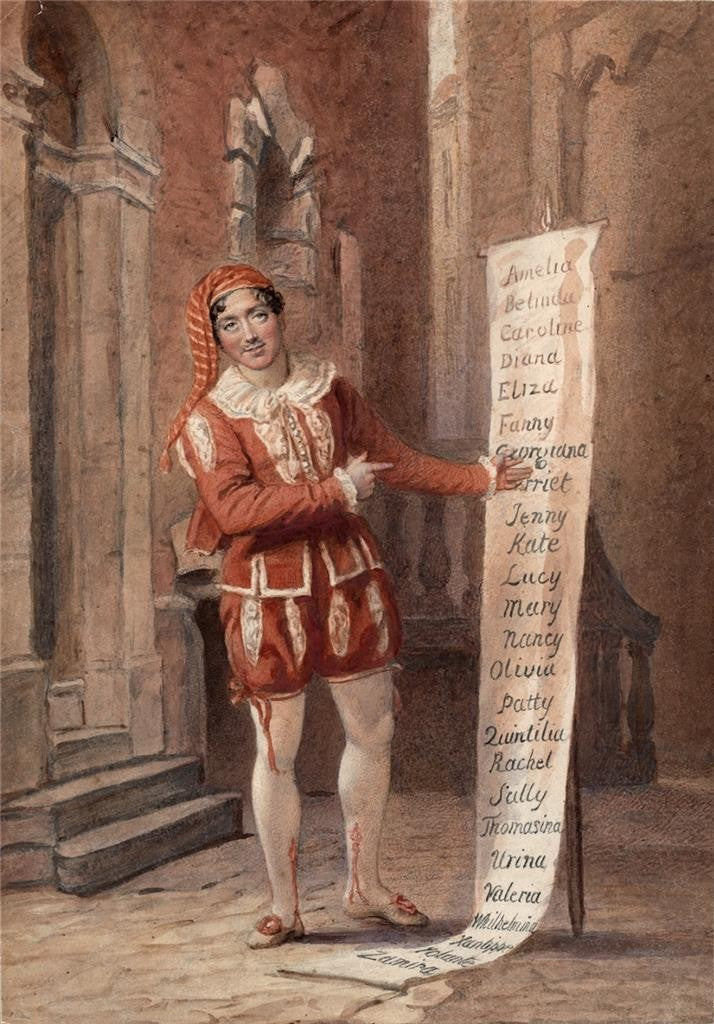 Amelia
Belinda
Caroline
Diana
Eliza
Fanny
Georgiana
rriet
Jenny
Kate
Lucy
Mary
Nancy
Olivia
Patty
Quintilia
Rachel
Sally
Thomasina
Urina
Valeria
Whilhelmina
Xantippe
Yolante
Zamira